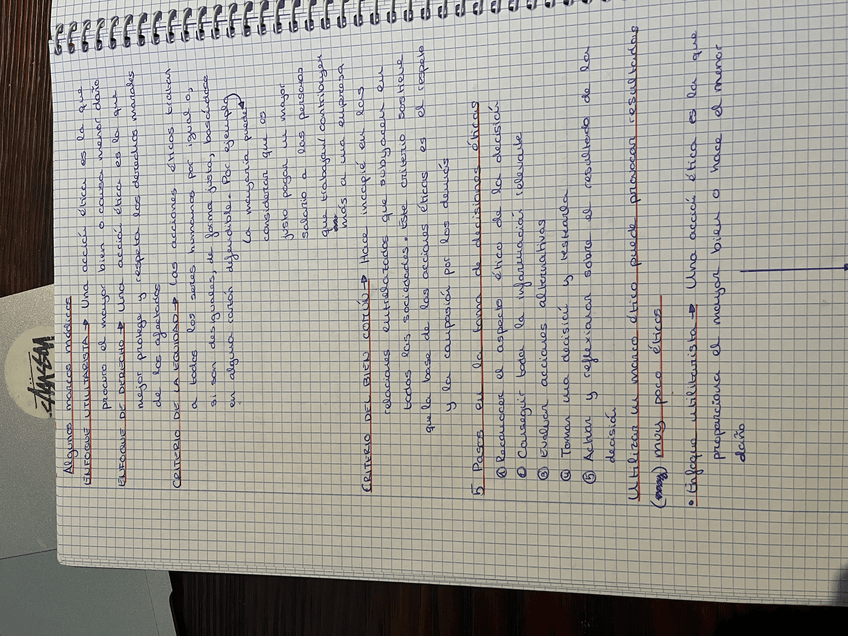 Algunos marcos médicos
ENFOQUE UTILITARISTA → Una acción ética es la que
procura el mayor bien o causa menor daño
ENFOQUE DE DERECHO → Una acción ética es la que
mejor protege y respeta los derechos morales
de los afectados
CRITERIO DE LA EQUIDAD → Las acciones éticas tratan
a todos los seres humanos por igual o,
si son desiguales, de forma justa, basándose
en alguna razón defendible. Por ejemplo,
la mayoría puede
considerar que es
justo pagar un mayor
salario a las personas
que trabajan/contribuyen
más a una empresa
CRITERIO DEL BIEN COMÚN → Hace incapié en las
relaciones entrelazadas que subyacen en
todas las sociedades. Este criterio sostiene
que la base de las acciones éticas es el respeto
y la compasión por los demás
5 Pasos en la toma de decisiones éticas
① Reconocer el aspecto ético de la decisión
② Conseguir toda la información relevante
③ Evaluar acciones alternativas
④ Tomar una decisión y testarla
⑤ Actuar y reflexionar sobre el resultado de la
decisión
Utilizar un marco ético puede provocar resultados
muy poco éticos
• Enfoque utilitarista → Una acción ética es la que
proporciona el mayor bien o hace el menor
daño
STÜSSY